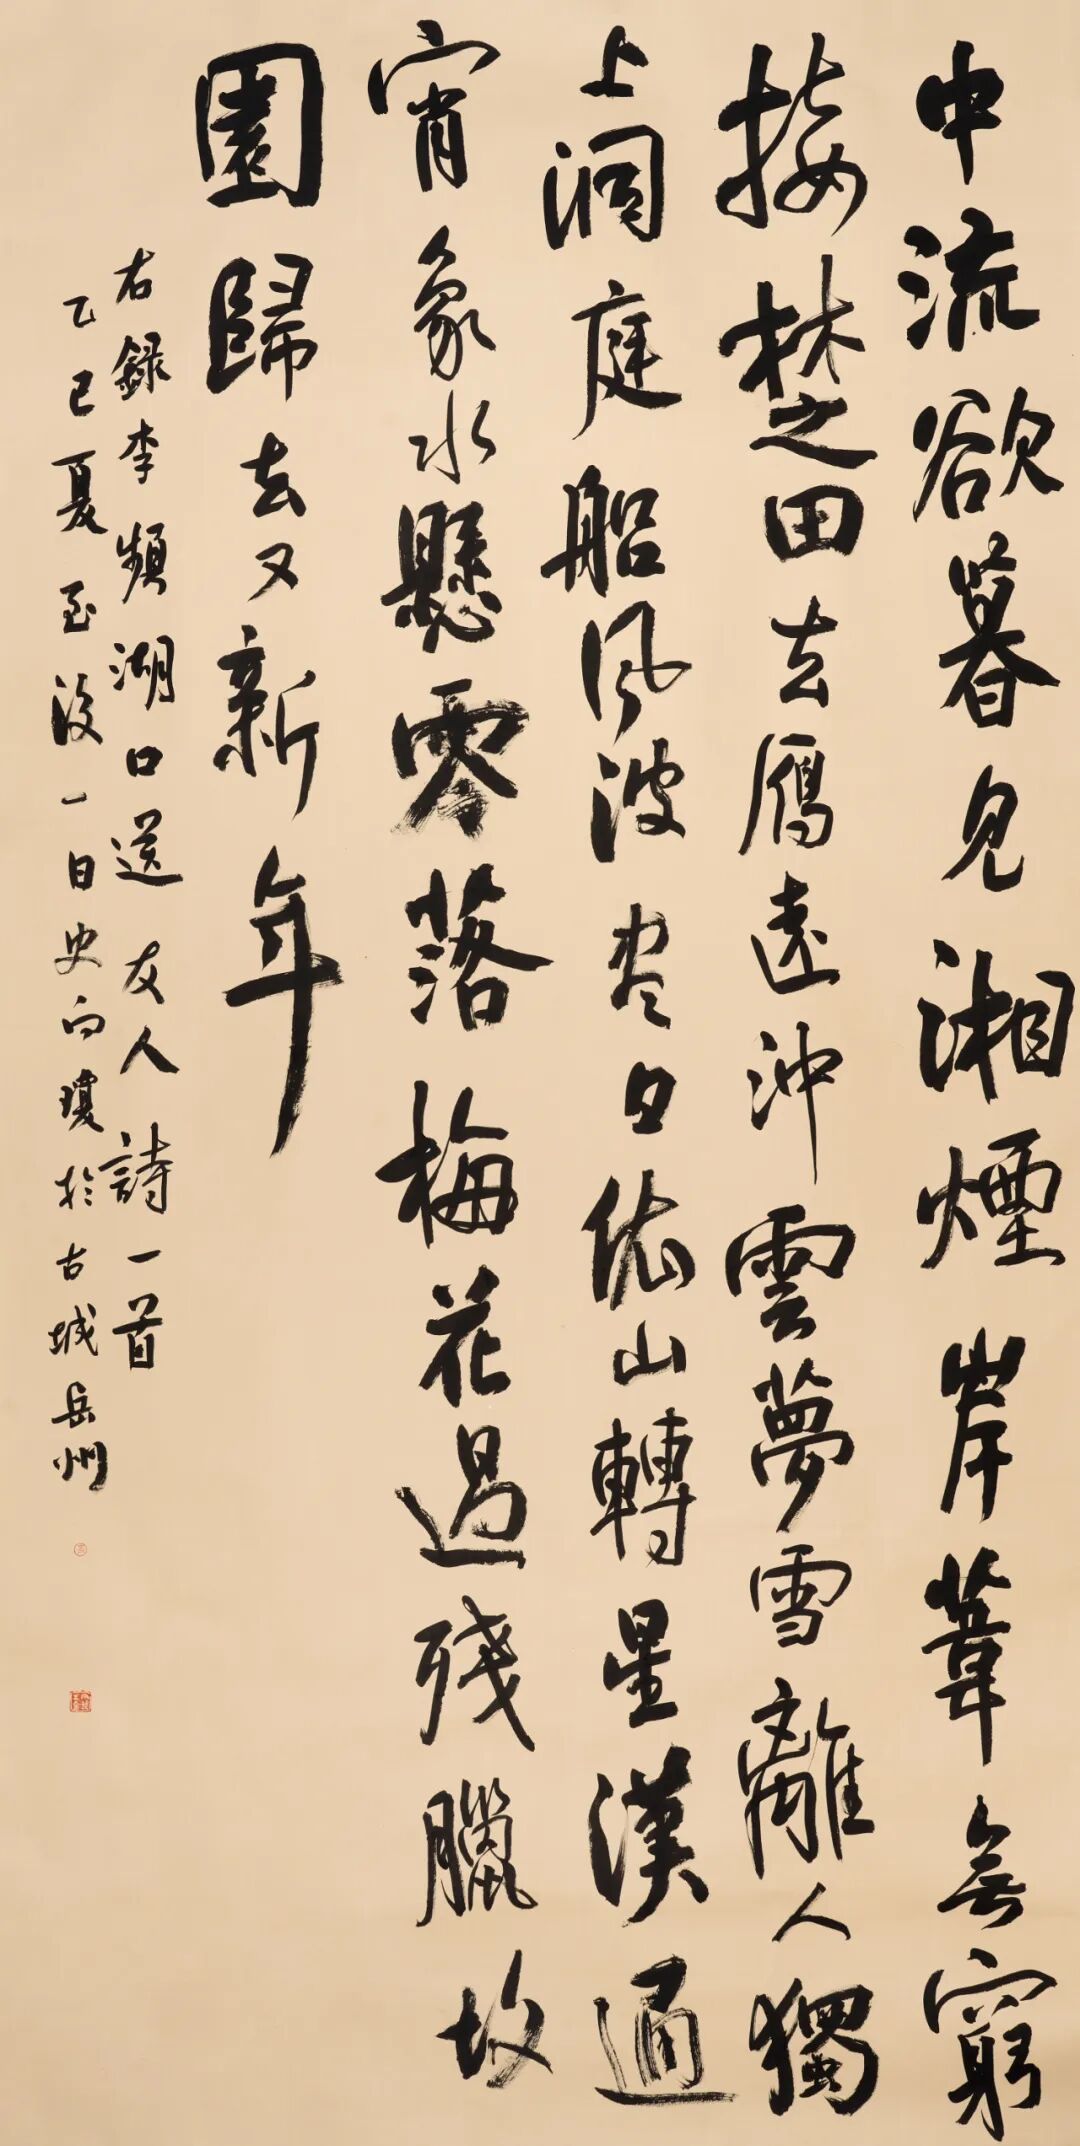 中流欲暮見湘煙岸葦無窮
接楚田去雁遠沖雲夢雪離人獨
上洞庭船風波盡日依山轉星漢通
宵象水懸零落梅花過殘臘故
園歸去又新年
右錄李頻湖口送友人詩一首
乙巳夏至後一日史向瓊於古城岳州